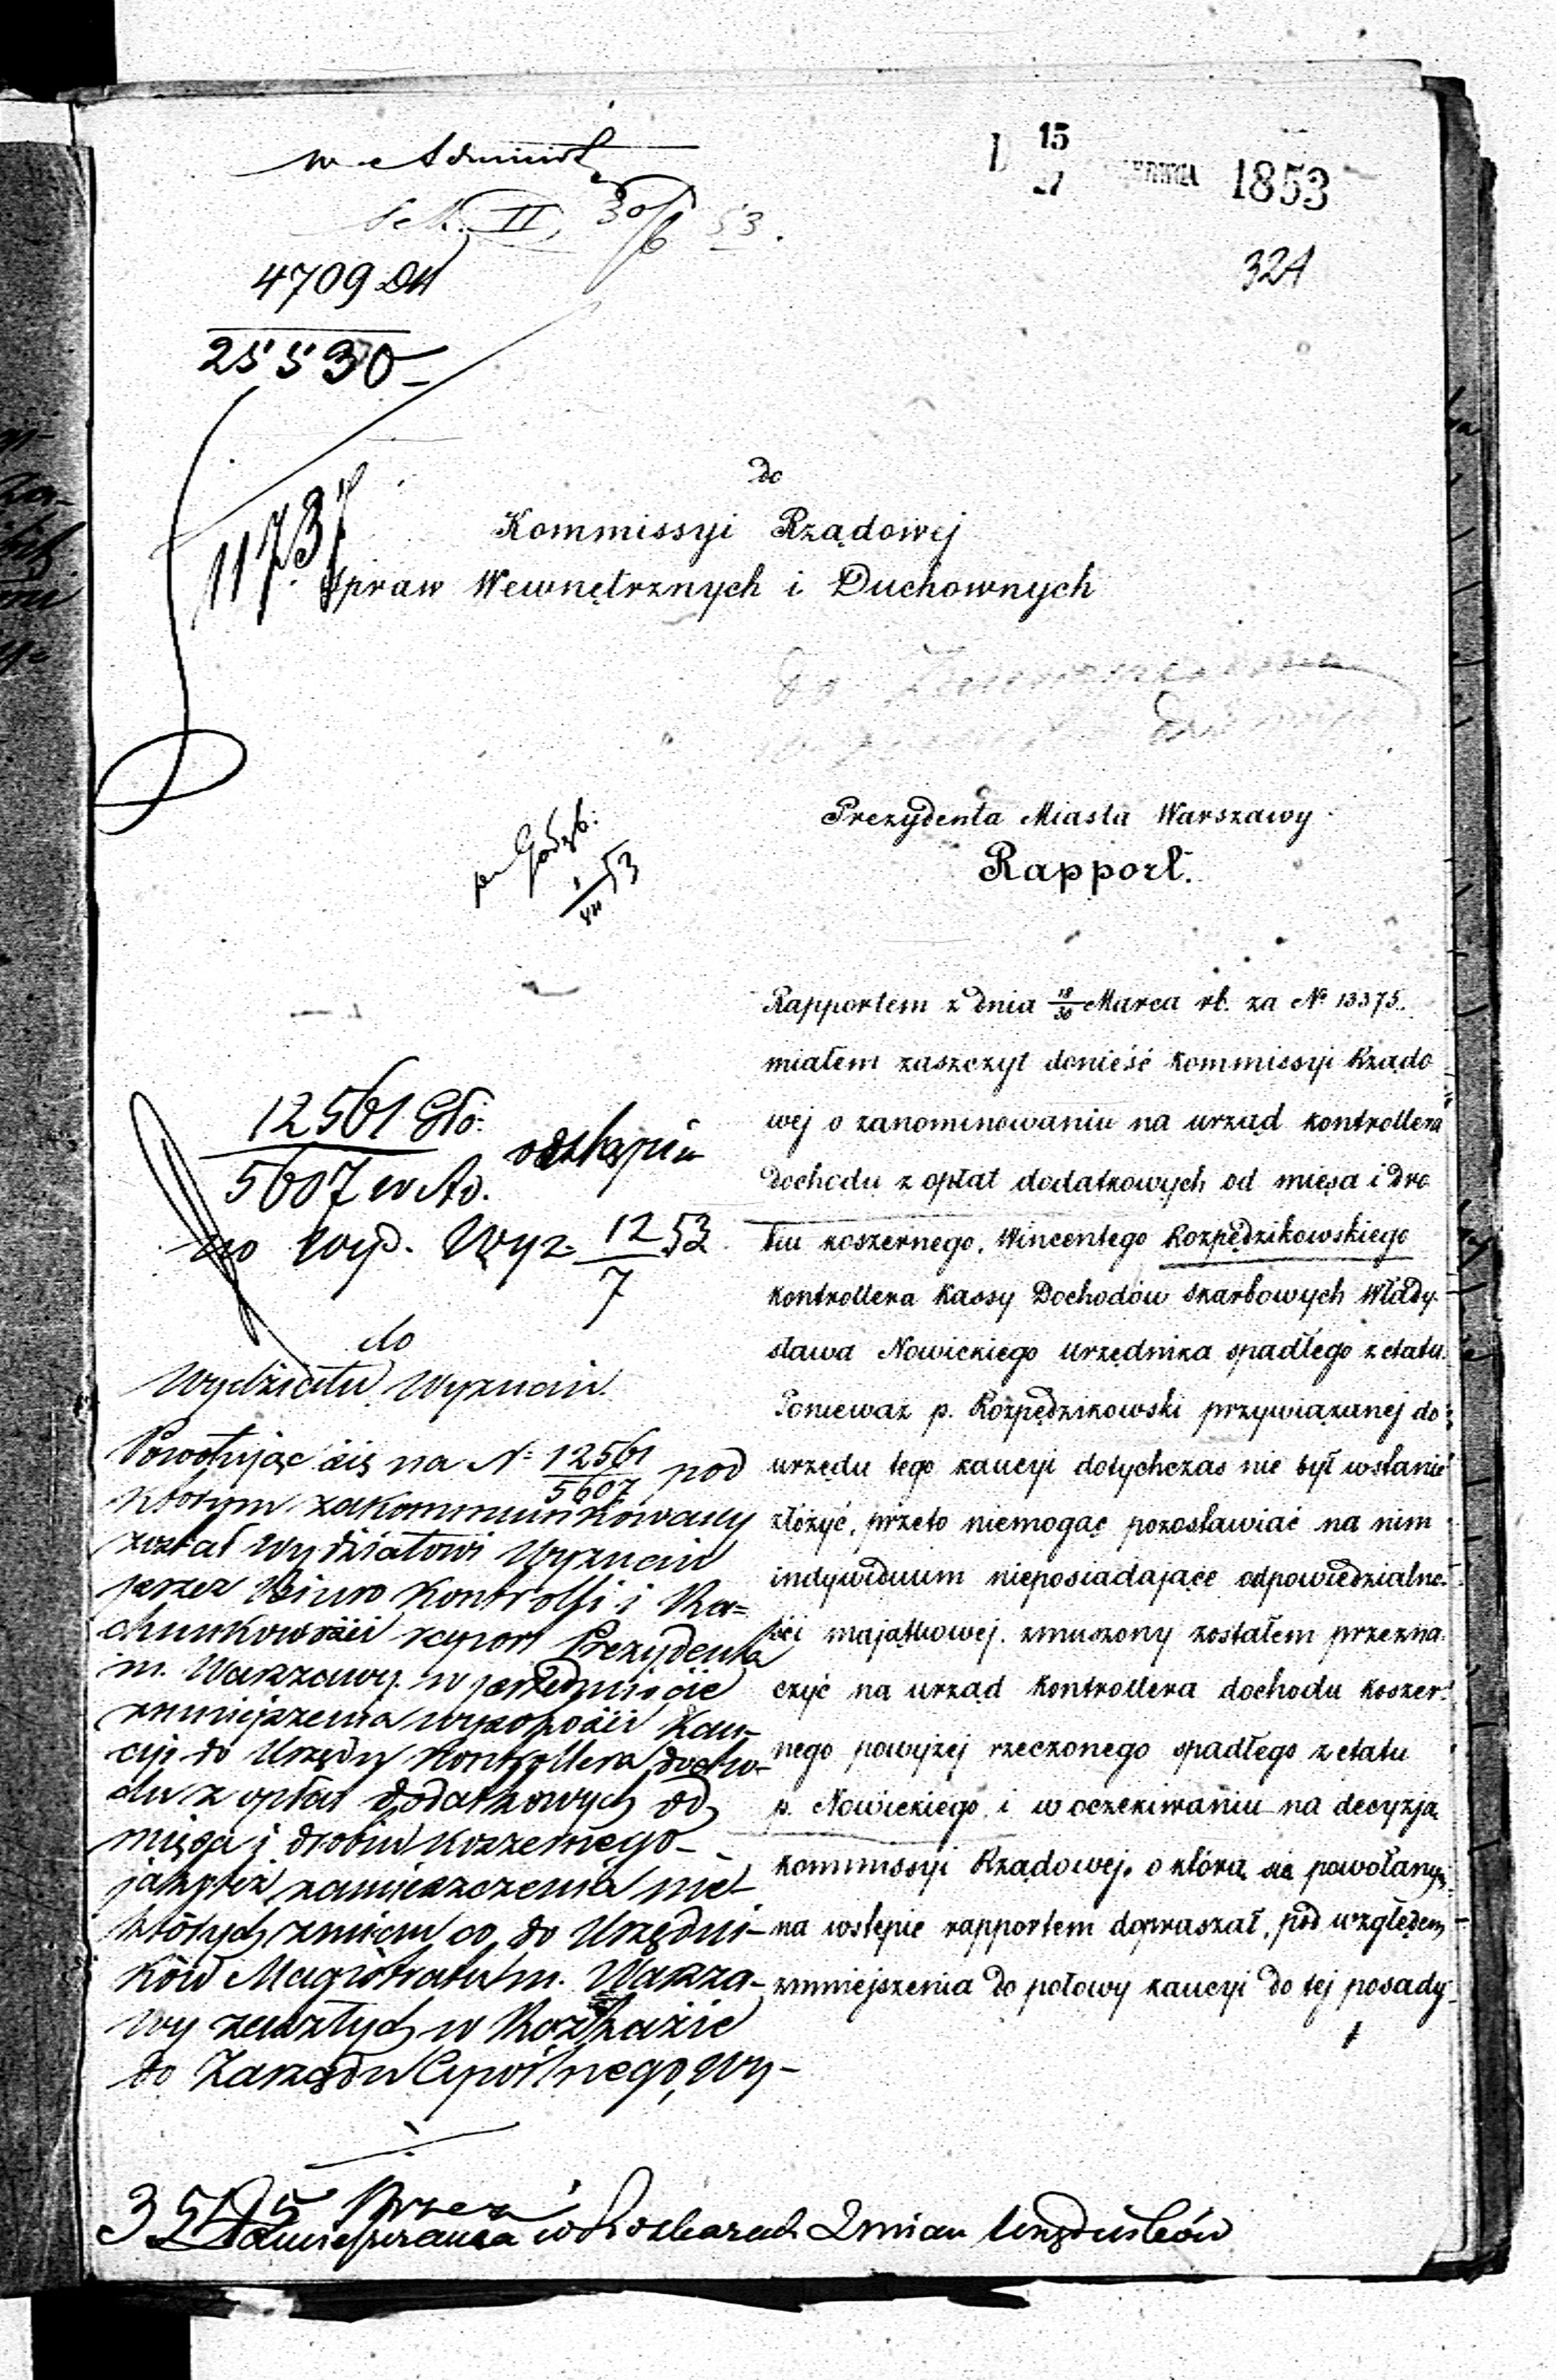 w Administ
Sek. II, 30/6 53.
15
27 1853
324
4709 DW
25530
11737
do
Kommissyi Rządowej
Spraw Wewnętrznych i Duchownych
Prezydenta Miasta Warszawy
Rapport.
1/VII 53
Rapportem z dnia 18/30 Marca rb. za № 13375.
miałem zaszczyt donieść Kommissyi Rządo
wej o zanominowaniu na urząd kontrollera
dochodu z opłat dodatkowych od mięsa i dro
biu koszernego, Wincentego Rozpędzikowskiego
kontrollera Kassy Dochodów skarbowych Włady
sława Nowickiego urzędnika spadłego z etatu.
Ponieważ p. Rozpędzikowski przywiązanej do
urzędu tego kaucyi dotychczas nie był wstanie
złożyć, przeto niemogąc pozostawiać na nim
indywiduum nieposiadające odpowiedzialno
ści majątkowej, zmuszony zostałem przezna
czyć na urząd kontrollera dochodu koszer
nego powyżej rzeczonego spadłego z etatu
p. Nowickiego, i w oczekiwaniu na decyzją
kommissyi Rządowej, o którą się powołanym
na wstępie rapportem dopraszał, pod względem
zmniejszenia do połowy kaucyi do tej posady
12561 Gło.
5607 w Ad.
odstąpić
do Wyd. Wyz. 12/7 53
do
Wydziału Wyznań.
Powołując się na № 12561/5607 pod
którym zakommunikowany
został Wydziałowi Wyznań
przez Biuro Kontrolli i Ra=
chunkowości raport Prezydenta
m. Warszawy w przedmiocie
zmniejszenia wysokości kau-
cyi do Urzędu Kontrollera docho-
du z opłat dodatkowych od
mięsa i drobiu koszernego
jakoteż zamieszczenia nie-
których zmian co do Urzędni-
ków Magistratu m. Warsza-
wy zaszłych w Rozkazie
do Zarządu Cywilnego, Wy-
przez
w Rozkazach Zmian Urzędników